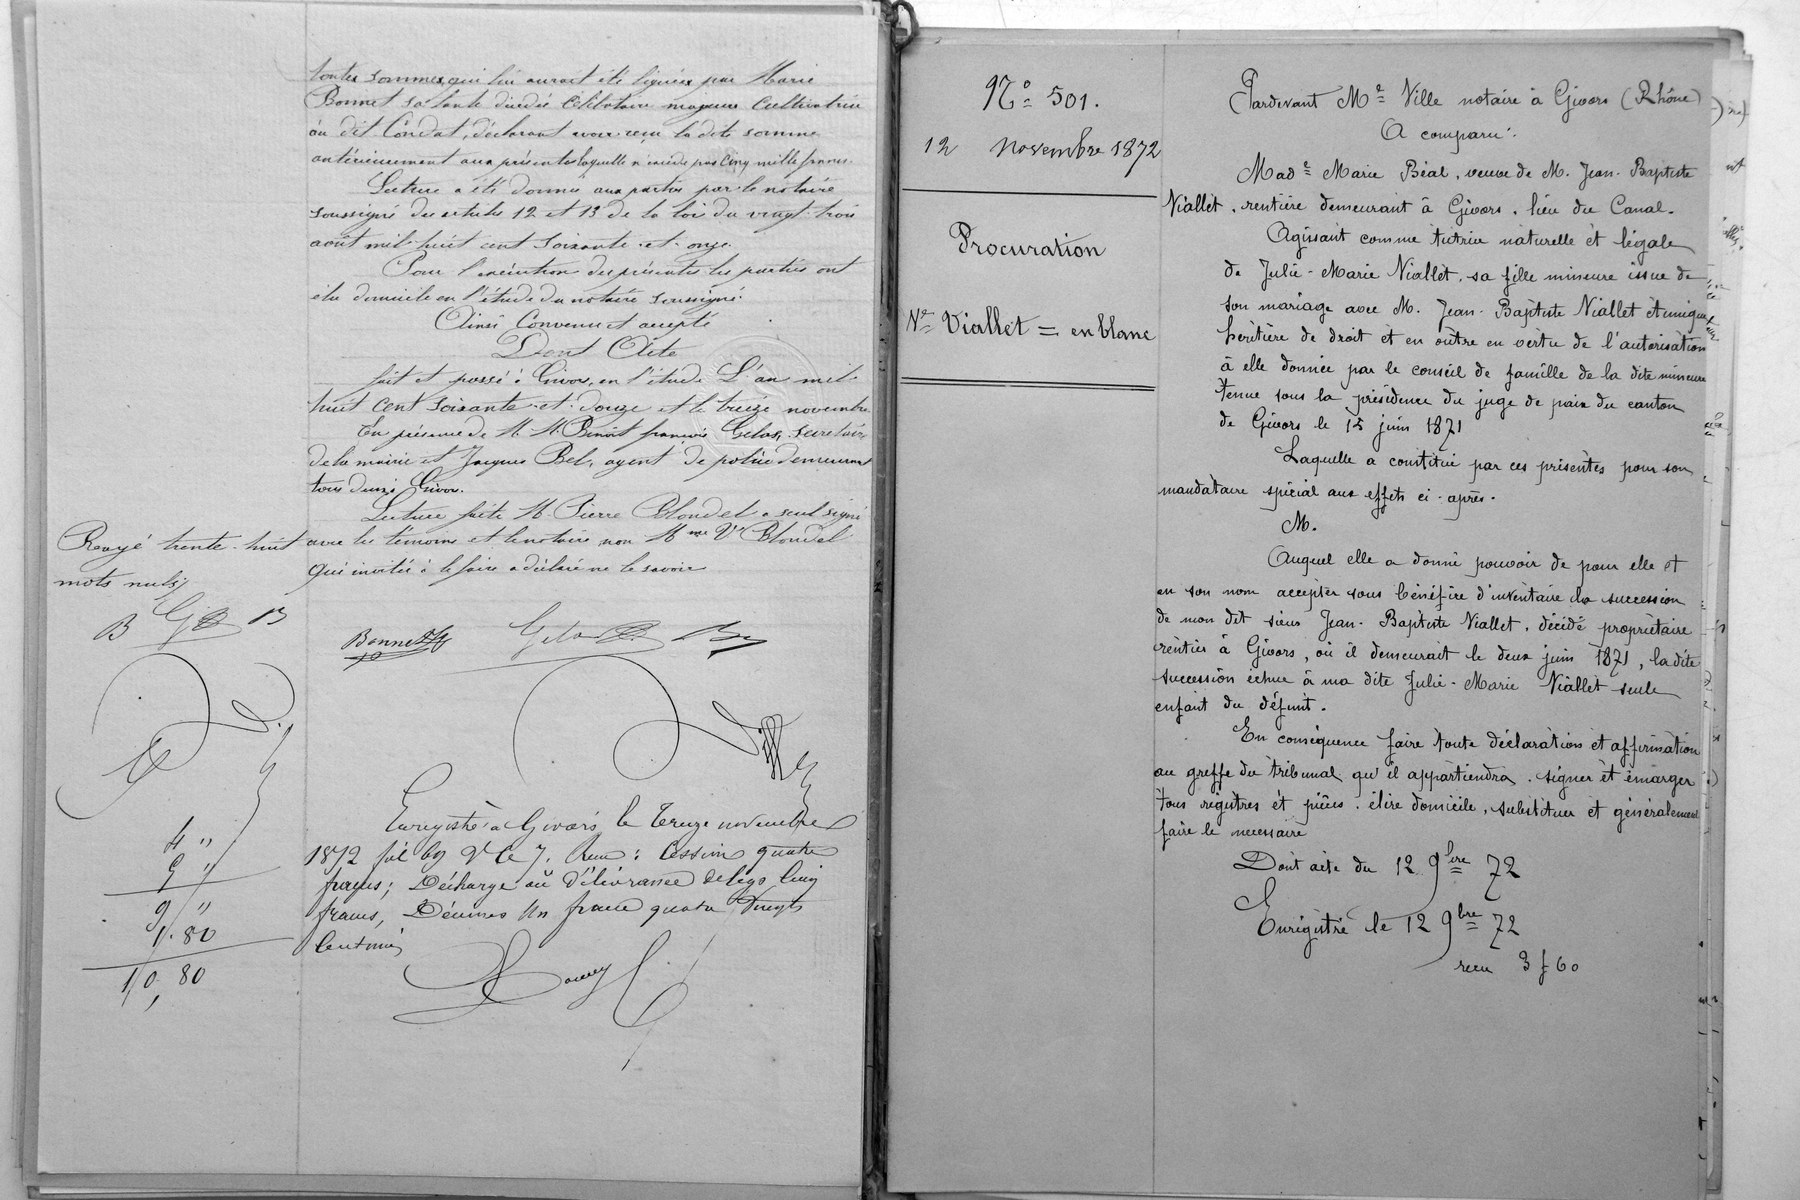 toutes sommes qui lui aurait été léguées par Marie
Bonnet sa tante décédée célibataire majeure cultivatrice
au dit Condat, déclarant avoir reçu la dite somme
antérieurement aux présentes laquelle n'excède pas cinq mille francs.
Lecture a été donnée aux parties par le notaire
soussigné des articles 12 et 13 de la loi du vingt-trois
août mil-huit cent soixante-et-onze.
Pour l'exécution des présentes les parties ont
élu domicile en l'étude du notaire soussigné.
Ainsi convenu et accepté
Dont Acte
fait et passé à Givors, en l'étude L'an mil-
huit cent soixante-et-douze et le treize novembre
En présence de M. M. Benoit françois Gelas, secrétaire
de la mairie et Jacques Bel, agent de police demeurant
tous deux à Givors.
Lecture faite M. Pierre Blondel a seul signé
avec les témoins et le notaire non Mme Vve Blondel
qui invitée à le faire a déclaré ne le savoir
Rayé trente-huit
mots nuls;
B G B
Gelas
Ville
Enregistré à Givors le treize novembre
1872 fol 69 Vo C 7. Reçu: Cession quatre
francs; Décharge ou délivrance de legs cinq
francs, Décimes un franc quatre vingts
centimes
4 "
5 "
9 "
1.80
10,80
No 501.
12 novembre 1872
Procuration
Ve Viallet = en blanc
Pardevant Me Ville notaire à Givors (Rhône)
A comparu:
Made Marie Béal, veuve de M. Jean-Baptiste
Viallet, rentière demeurant à Givors, lieu du Canal.
Agissant comme tutrice naturelle et légale
de Julie-Marie Viallet, sa fille mineure issue de
son mariage avec M. Jean-Baptiste Viallet et unique
héritière de droit et en outre en vertu de l'autorisation
à elle donnée par le conseil de famille de la dite mineure
tenue sous la présidence du juge de paix du canton
de Givors le 15 juin 1871
Laquelle a constitué par ces présentes pour son
mandataire spécial aux effets ci-après.
M.
Auquel elle a donné pouvoir de pour elle et
en son nom accepter sous bénéfice d'inventaire la succession
de mon dit sieur Jean-Baptiste Viallet, décédé propriétaire
rentier à Givors, où il demeurait le deux juin 1871, la dite
succession échue à ma dite Julie-Marie Viallet seule
enfant du défunt.
En conséquence faire toute déclaration et affirmation
au greffe du tribunal qu'il appartiendra, signer et émarger
tous registres et pièces, élire domicile, substituer et généralement
faire le nécessaire
Dont acte du 12 9bre 72
Enregistré le 12 9bre 72
reçu 3 f 60